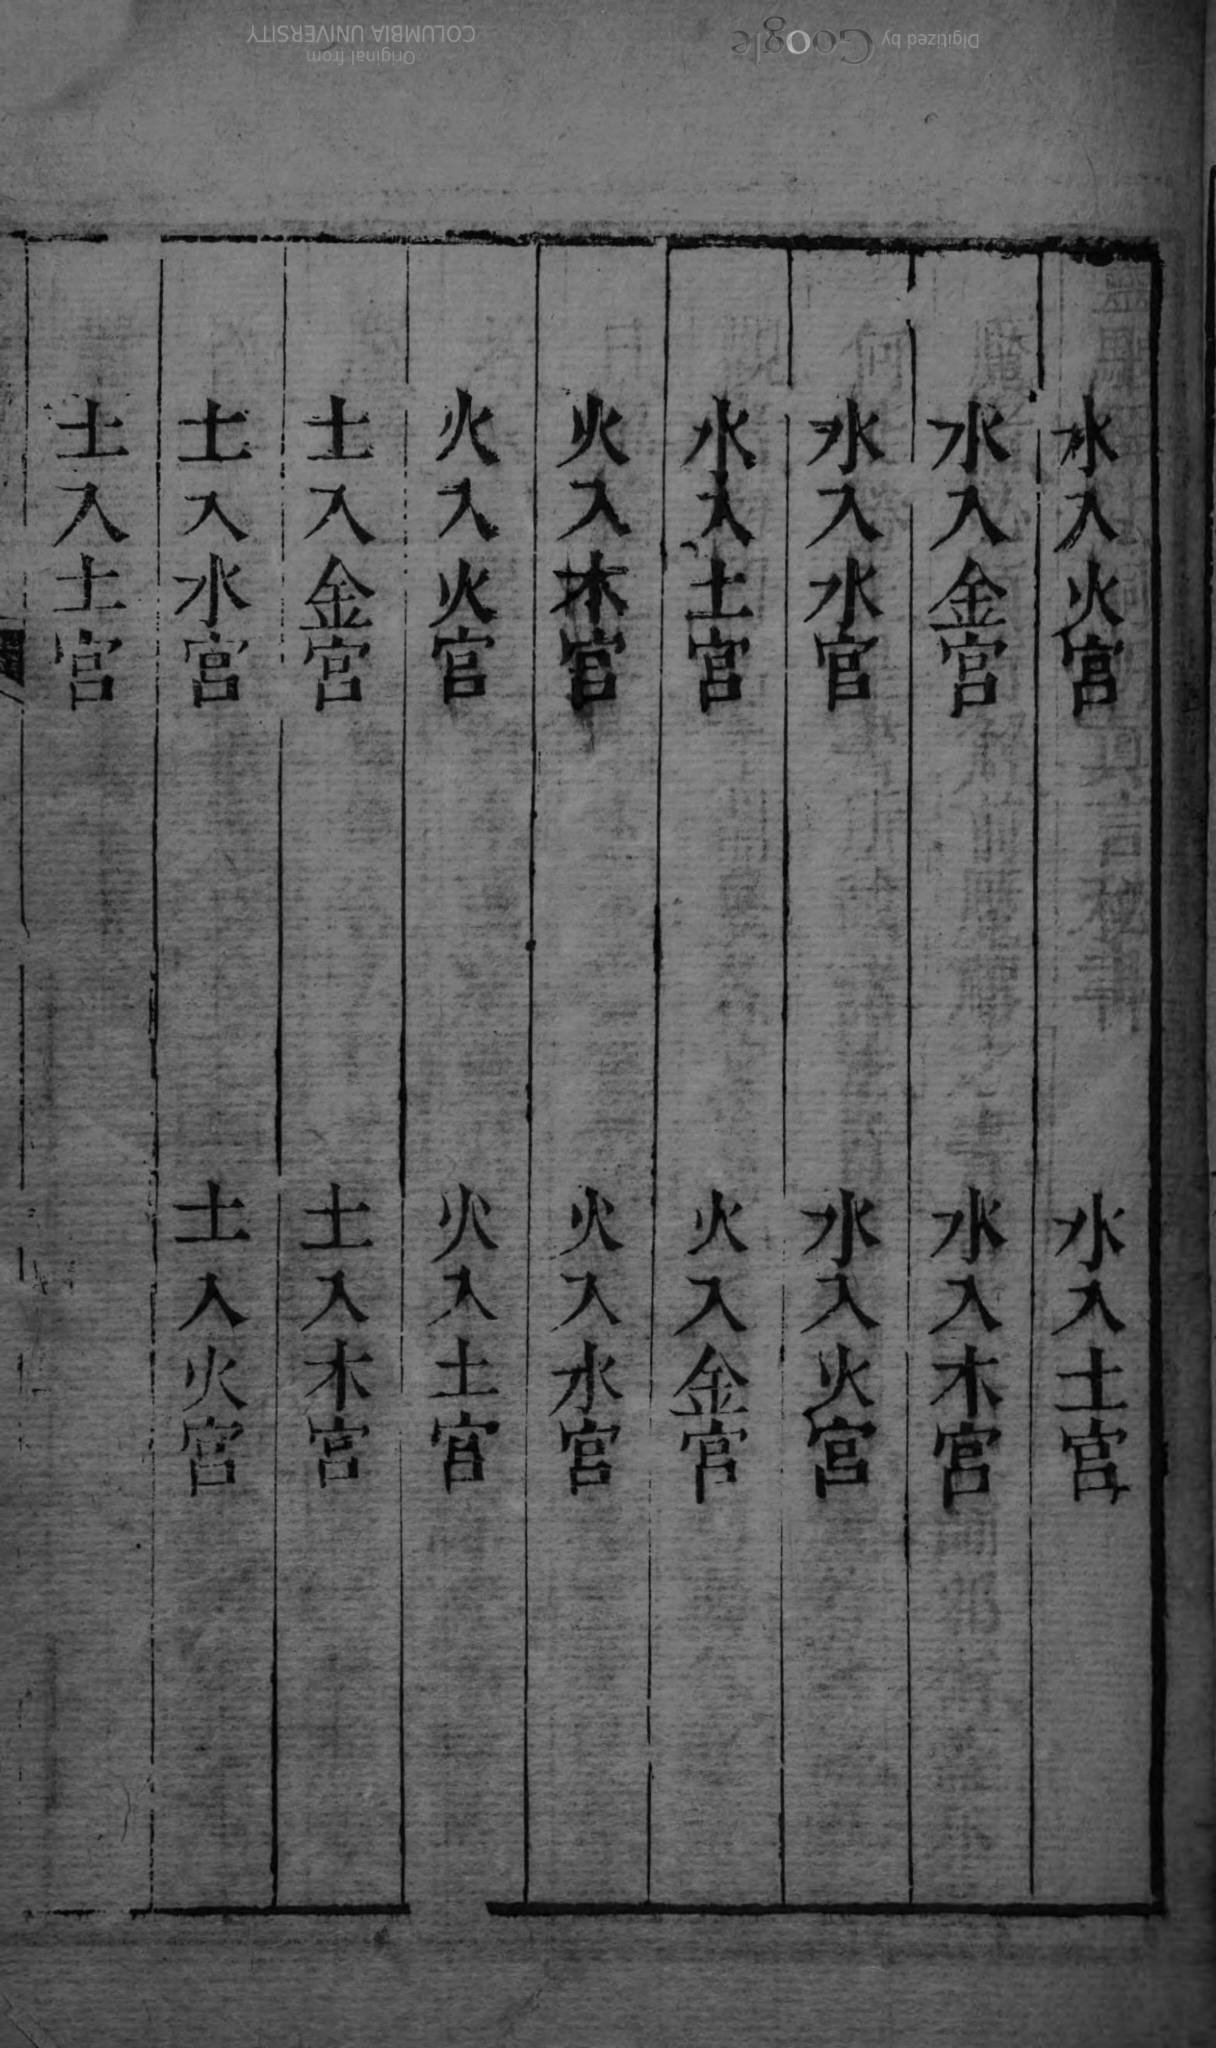 水入火宮 水入土宮
水入金宮 水入木宮
水入水宮 水入火宮
水入土宮 火入金宮
火入木宮 火入水宮
火入火宮 火入土宮
土入金宮 土入木宮
土入水宮 土入火宮
土入土宮
Digitized by Google
Original from
COLUMBIA UNIVERSITY